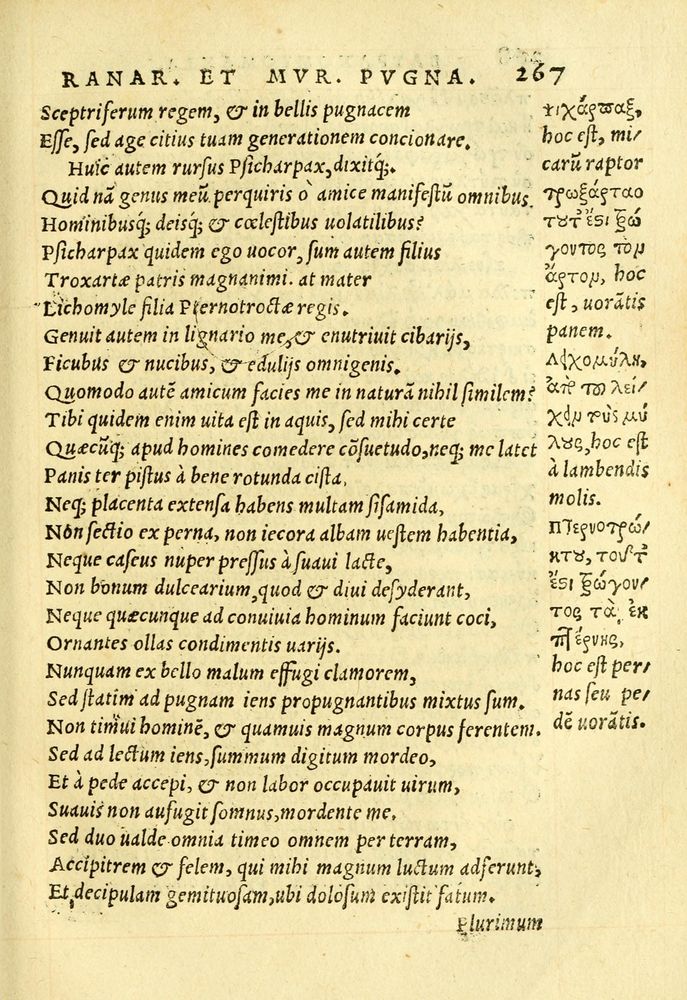 RANAR. ET MVR. PVGNA. 267
Sceptriferum regem, & in bellis pugnacem
Esse, sed age citius tuam generationem concionare.
Huic autem rursus Psicharpax, dixitq;.
Quid nā genus meū perquiris ò amice manifestū omnibus
Hominibusq; deisq; & cœlestibus uolatilibus?
Psicharpax quidem ego uocor, sum autem filius
Troxartæ patris magnanimi. at mater
Lichomyle filia Pternotroctæ regis.
Genuit autem in lignario me, & enutriuit cibarijs,
Ficubus & nucibus, & edulijs omnigenis.
Quomodo autē amicum facies me in naturā nihil similem?
Tibi quidem enim uita est in aquis, sed mihi certe
Quæcūq; apud homines comedere cōsuetudo, neq; me latet
Panis ter pistus à bene rotunda cista,
Neq; placenta extensa habens multam sisamida,
Non sectio ex perna, non iecora albam uestem habentia,
Neque caseus nuper pressus à suaui lacte,
Non bonum dulcearium, quod & diui desyderant,
Neque quæcunque ad conuiuia hominum faciunt coci,
Ornantes ollas condimentis uarijs.
Nunquam ex bello malum effugi clamorem,
Sed statim ad pugnam iens propugnantibus mixtus sum.
Non timui hominē, & quamuis magnum corpus ferentem.
Sed ad lectum iens, summum digitum mordeo,
Et à pede accepi, & non labor occupauit uirum,
Suauis non aufugit somnus, mordente me.
Sed duo ualde omnia timeo omnem per terram,
Accipitrem & felem, qui mihi magnum luctum adferunt,
Et decipulam gemituosam, ubi dolosum existit fatum.
Plurimum
ψιχάρπαξ,
hoc est, mi/
carū raptor
τρωξάρταο
τουτέστι τρώ
γοντος τὸν
ἄρτον, hoc
est, uorātis
panem.
Λειχομύλη,
ἀπὸ τοῦ λεί/
χειν τοὺς μύ
λους, hoc est
à lambendis
molis.
πτερνοτρώ/
κτου, τουτ
έστι τρώγον/
τος τὰ ἐκ
πτέρνης,
hoc est per/
nas seu pe/
dē uorātis.